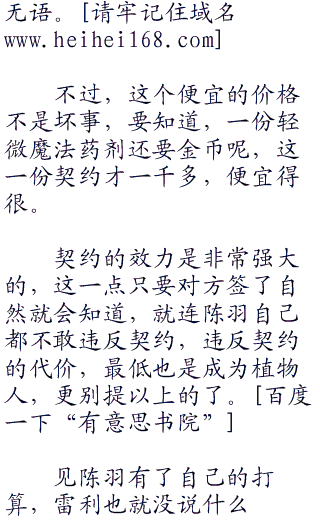 无语。[请牢记住域名
www.heihei168.com]
不过，这个便宜的价格
不是坏事，要知道，一份轻
微魔法药剂还要金币呢，这
一份契约才一千多，便宜得
很。
契约的效力是非常强大
的，这一点只要对方签了自
然就会知道，就连陈羽自己
都不敢违反契约，违反契约
的代价，最低也是成为植物
人，更别提以上的了。[百度
一下“有意思书院”]
见陈羽有了自己的打
算，雷利也就没说什么